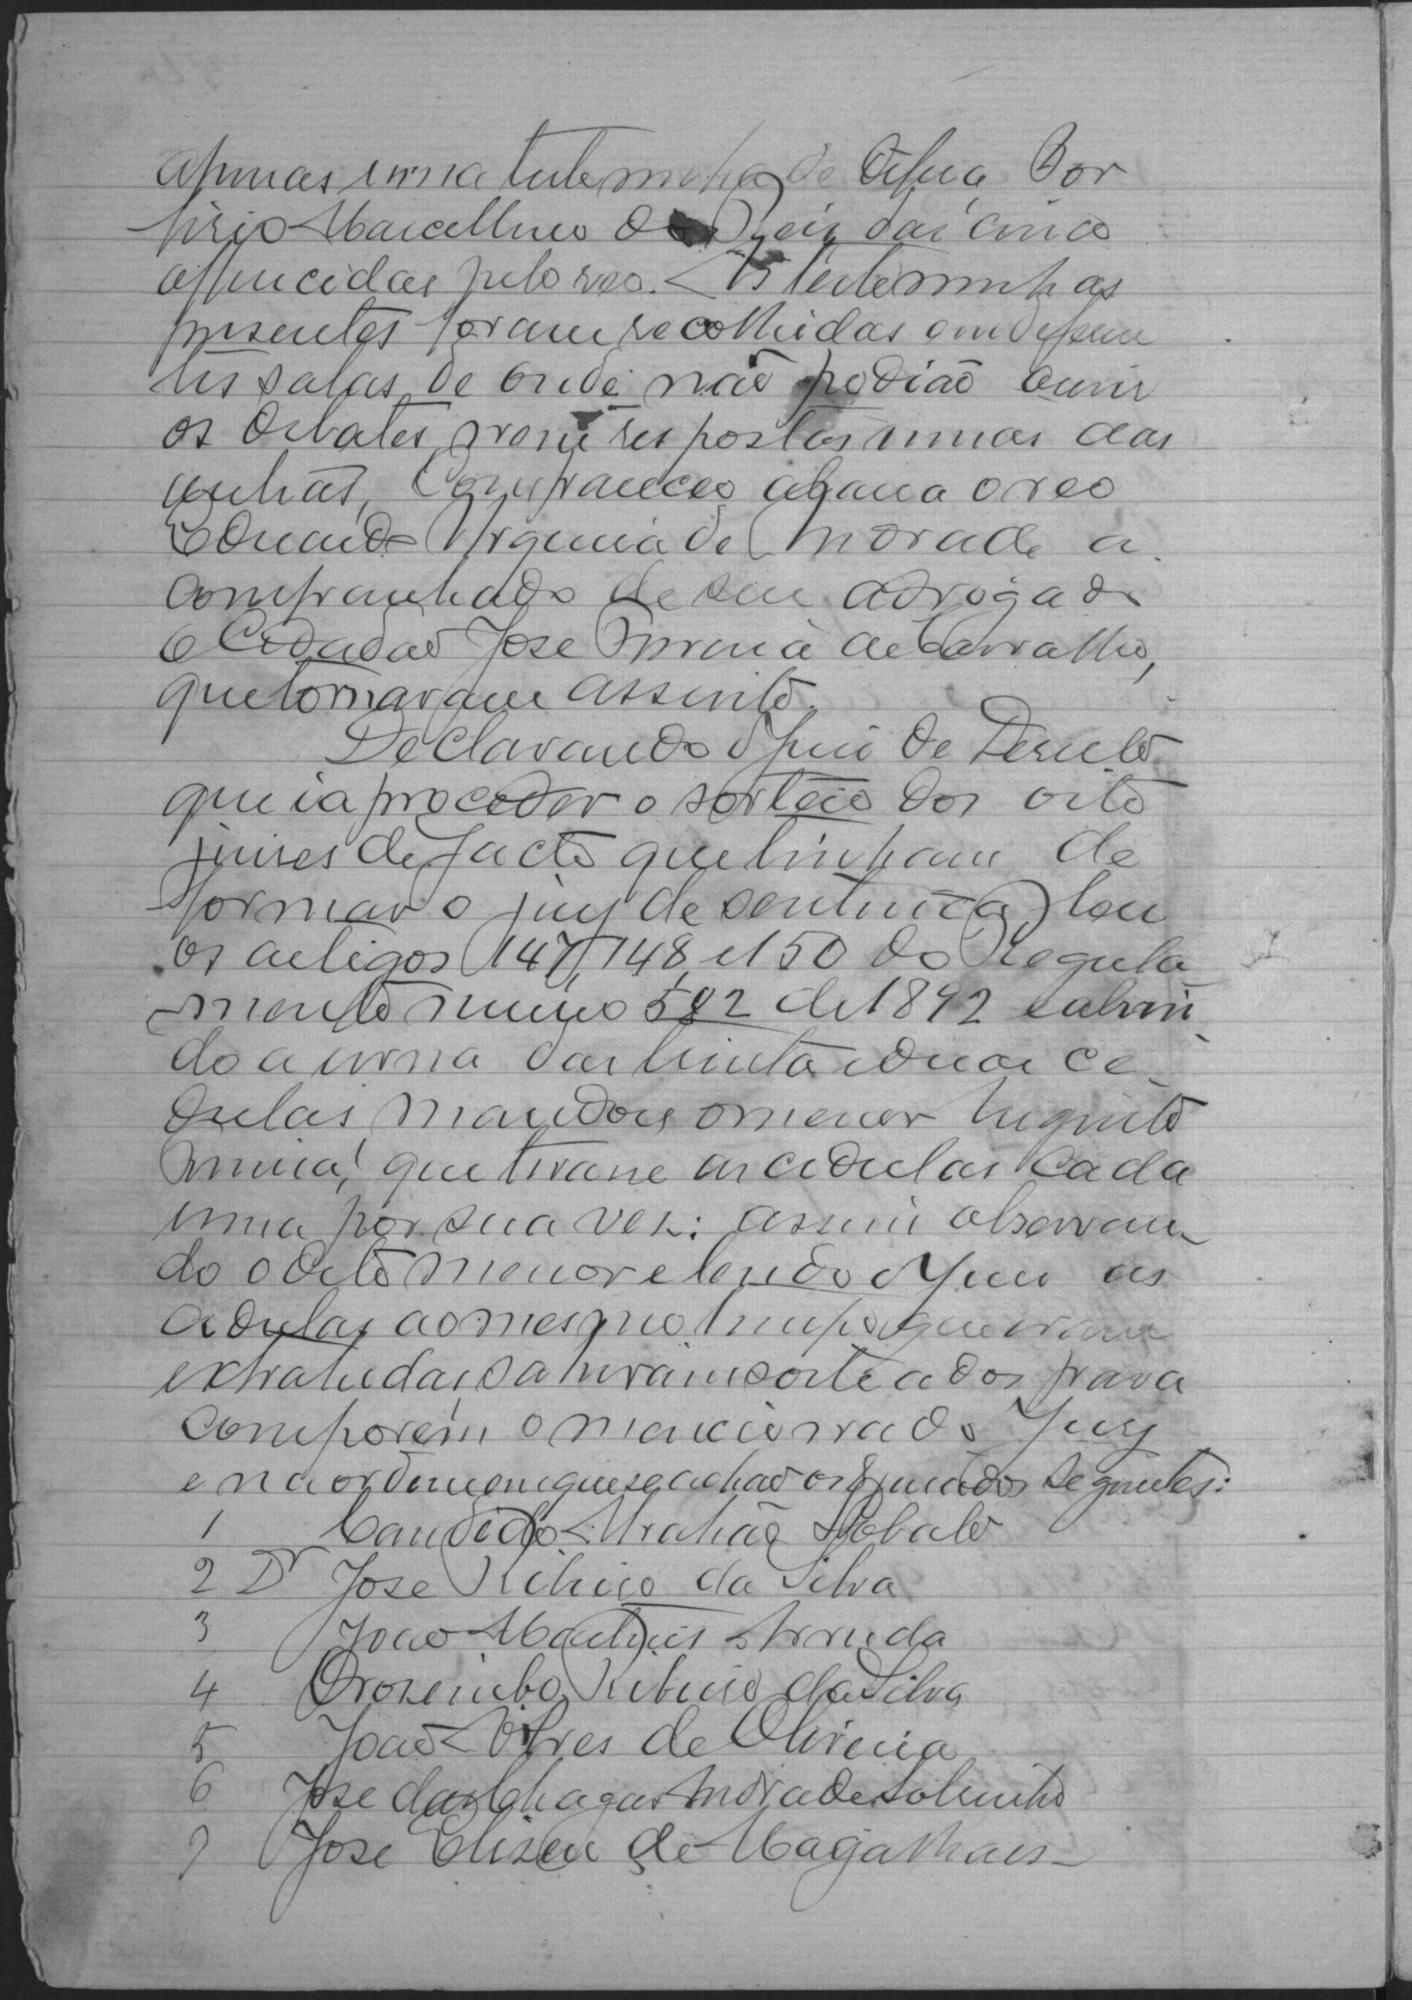 apenas uma testeminha de defesa Por
firio Marcellino dos Reis das cinco
offerecidas pelo reo. As testeminhas
presentes foram recolhidas em deferen
tes salas de onde não podião ouvir
os debates, nem respostas umas das
outras, Compareceo á barra o reo
Eduardo Virginia de Morade a
companhado de seu advogado
o Cidadão Jose Pereira de Carvalho,
que tomaram assento.
Declarando o Juiz de Direito
que ia proceder o sorteio dos oito
juises de facto que tinham de
formar o jury de sentença, leu
os artigos 147, 148, e 150 do Regula
mento numero 582 de 1892 e abrin
do a urna das trinta e duas ce
dulas, mandou o menor
que tirasse as cedulas cada
uma por sua vez: assim observan
do o dito menor e lendo o Juiz as
cedulas ao mesmo tempo que eram
extrahidas sahiram sorteados para
comporem o mencionado Jury
e na ordem em que se achão os jurados seguintes:
1 Candido Abrahão Lobato
2 Dr Jose Ribeiro da Silva
3 João Martins Arruda
4 Orosimbo Ribeiro da Silva
5 João Alves de Oliveira
6 Jose das Chagas Andrade Sobrinho
7 Jose Eliseu de Magalhaes